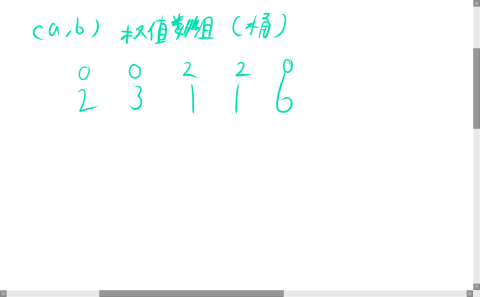 (a,b) 权值数组 (桶)
0 0 2 2 0
2 3 1 1 6